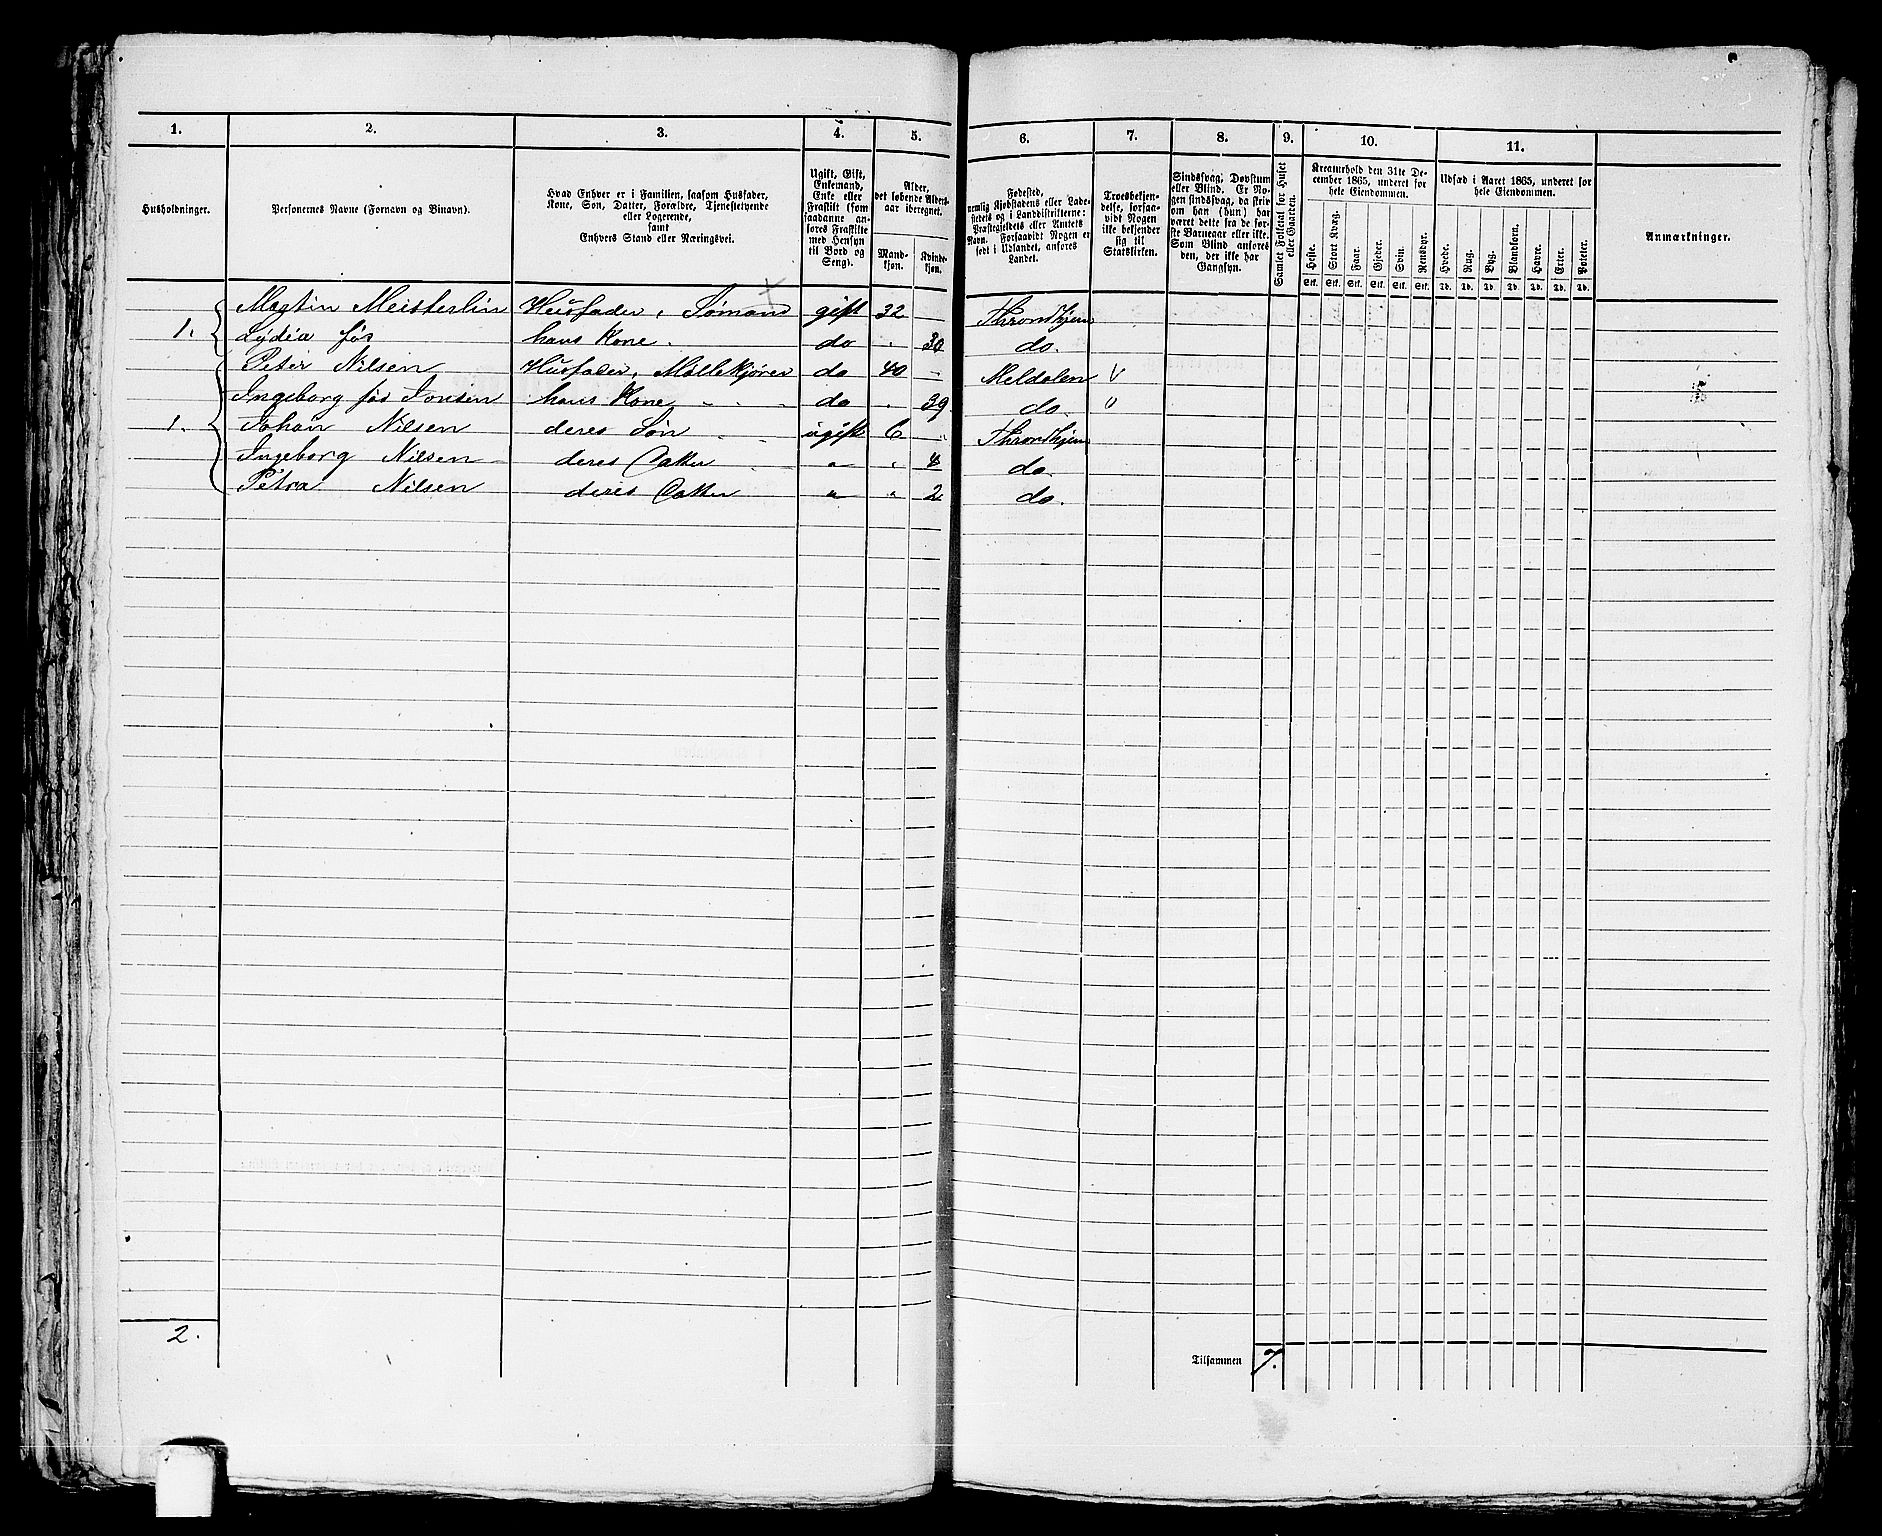 1. 2. 3. 4. 5. 6. 7. 8. 9. 10. 11.
Husholdninger.
Personernes Navne (Fornavn og Binavn).
Hvad Enhver er i Familien, saasom Husfader,
Kone, Søn, Datter, Forældre, Tjenestetyende
eller Logerende,
samt
Enhvers Stand eller Næringsvei.
Ugift, Gift,
Enkemand,
Enke eller
Fraskilt (som
saadanne an-
føres Fraskilte
med Hensyn
til Bord og
Seng).
Alder,
det løbende Alders-
aar iberegnet.
Mand-
kjøn.
Kvinde-
kjøn.
Fødested,
nemlig Kjøbstadens eller Lade-
stedets og i Landdistrikterne:
Præstegjeldets eller Amtets
Navn. Forsaavidt Nogen er
født i Udlandet, anføres
Landet.
Troesbekjen-
delse, forsaa-
vidt Nogen
ikke bekjender
sig til
Statskirken.
Sindssvag, Døvstum
eller Blind. Er No-
gen sindssvag, da skriv
om han (hun) har
været dette fra de før-
ste Barneaar eller ikke.
Som Blind anføres
den, der ikke har
Gangsyn.
Samlet Folketal for Huset
eller Gaarden.
Kreaturhold den 31te De-
cember 1865, underet for
hele Eiendommen.
Heste. Stort Kvæg. Faar. Gjeder. Svin. Rensdyr.
Stk. Stk. Stk. Stk. Stk. Stk.
Udsæd i Aaret 1865, underet for
hele Eiendommen.
Hvede. Rug. Byg. Blandkorn. Havre. Erter. Poteter.
Td. Td. Td. Td. Td. Td. Td.
Anmærkninger.
Martin Meisterlin Husfader, Sømand gift 32 Throndhjem
1. Lydia før hans Kone. do 30 do.
Peter Nilsen Husfader, Møllekjører do 40 Meldalen
Ingeborg før Jonsen hans Kone do 39 do.
1. Johan Nilsen deres Søn ugift 6 Throndhjem
Ingeborg Nilsen deres Datter " " 4 do
Petra Nilsen deres Datter " " 2 do.
2. Tilsammen 7.